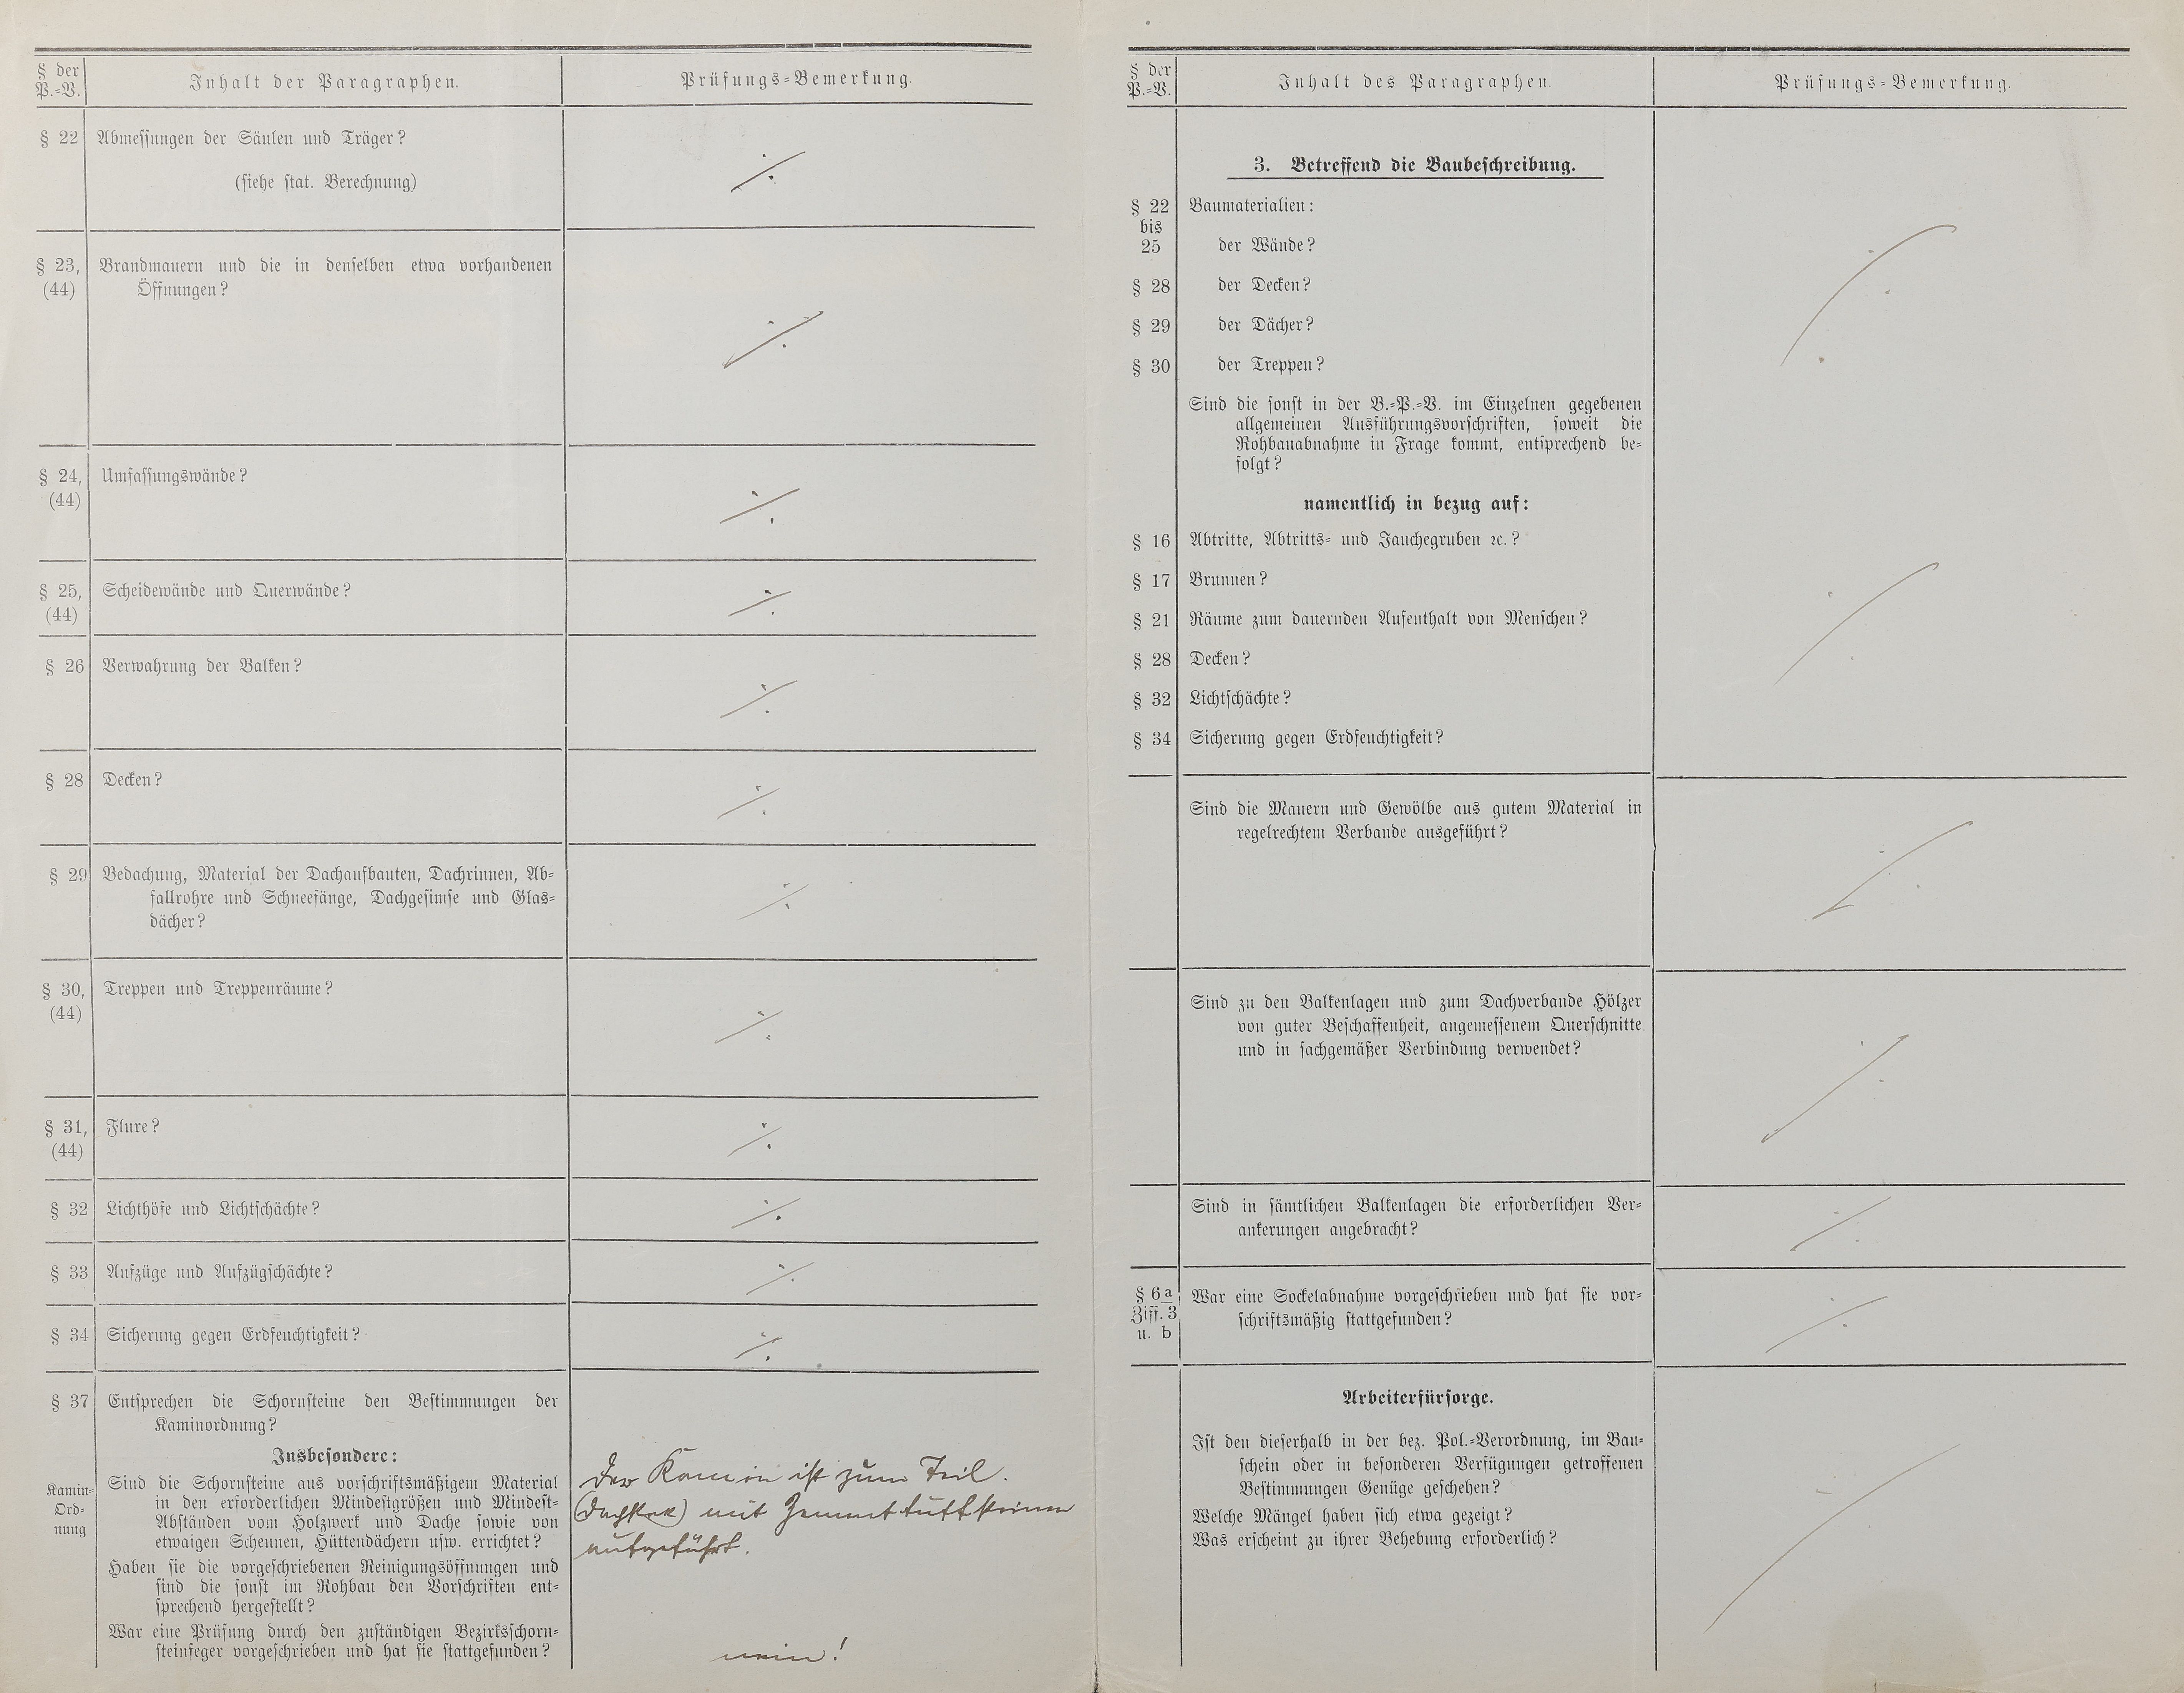 § der
P.-V.
Inhalt der Paragraphen.
Prüfungs-Bemerkung.
§ 22
Abmessungen der Säulen und Träger?
(siehe stat. Berechnung)
·/.
§ 23,
(44)
Brandmauern und die in denselben etwa vorhandenen
Öffnungen?
·/.
§ 24,
(44)
Umfassungswände?
·/.
§ 25,
(44)
Scheidewände und Querwände?
·/.
§ 26
Verwahrung der Balken?
·/.
§ 28
Decken?
·/.
§ 29
Bedachung, Material der Dachaufbauten, Dachrinnen, Ab-
fallrohre und Schneefänge, Dachgesimse und Glas-
dächer?
·/.
§ 30,
(44)
Treppen und Treppenräume?
·/.
§ 31,
(44)
Flure?
·/.
§ 32
Lichthöfe und Lichtschächte?
·/.
§ 33
Aufzüge und Aufzügschächte?
·/.
§ 34
Sicherung gegen Erdfeuchtigkeit?
·/.
§ 37
Entsprechen die Schornsteine den Bestimmungen der
Kaminordnung?
Insbesondere:
Kamin-
Ord-
nung
Sind die Schornsteine aus vorschriftsmäßigem Material
in den erforderlichen Mindestgrößen und Mindest-
Abständen vom Holzwerk und Dache sowie von
etwaigen Scheunen, Hüttendächern usw. errichtet?
Haben sie die vorgeschriebenen Reinigungsöffnungen und
sind die sonst im Rohbau den Vorschriften ent-
sprechend hergestellt?
War eine Prüfung durch den zuständigen Bezirksschorn-
steinfeger vorgeschrieben und hat sie stattgefunden?
Der Kamin ist zum Teil.
(Dachstock) mit Zementtuffsteinen
aufgeführt.
nein!
§ der
P.-V.
Inhalt des Paragraphen.
Prüfungs-Bemerkung.
3. Betreffend die Baubeschreibung.
§ 22
bis
25
Baumaterialien:
der Wände?
§ 28
der Decken?
§ 29
der Dächer?
§ 30
der Treppen?
·/.
Sind die sonst in der B.-P.-V. im Einzelnen gegebenen
allgemeinen Ausführungsvorschriften, soweit die
Rohbauabnahme in Frage kommt, entsprechend be-
folgt?
namentlich in bezug auf:
§ 16
Abtritte, Abtritts- und Jauchegruben ꝛc.?
§ 17
Brunnen?
§ 21
Räume zum dauernden Aufenthalt von Menschen?
§ 28
Decken?
§ 32
Lichtschächte?
§ 34
Sicherung gegen Erdfeuchtigkeit?
·/.
Sind die Mauern und Gewölbe aus gutem Material in
regelrechtem Verbande ausgeführt?
·/.
Sind zu den Balkenlagen und zum Dachverbande Hölzer
von guter Beschaffenheit, angemessenem Querschnitte
und in sachgemäßer Verbindung verwendet?
·/.
Sind in sämtlichen Balkenlagen die erforderlichen Ver-
ankerungen angebracht?
·/.
§ 6 a
Ziff. 3
u. b
War eine Sockelabnahme vorgeschrieben und hat sie vor-
schriftsmäßig stattgefunden?
·/.
Arbeiterfürsorge.
Ist den dieserhalb in der bez. Pol.-Verordnung, im Bau-
schein oder in besonderen Verfügungen getroffenen
Bestimmungen Genüge geschehen?
Welche Mängel haben sich etwa gezeigt?
Was erscheint zu ihrer Behebung erforderlich?
·/.